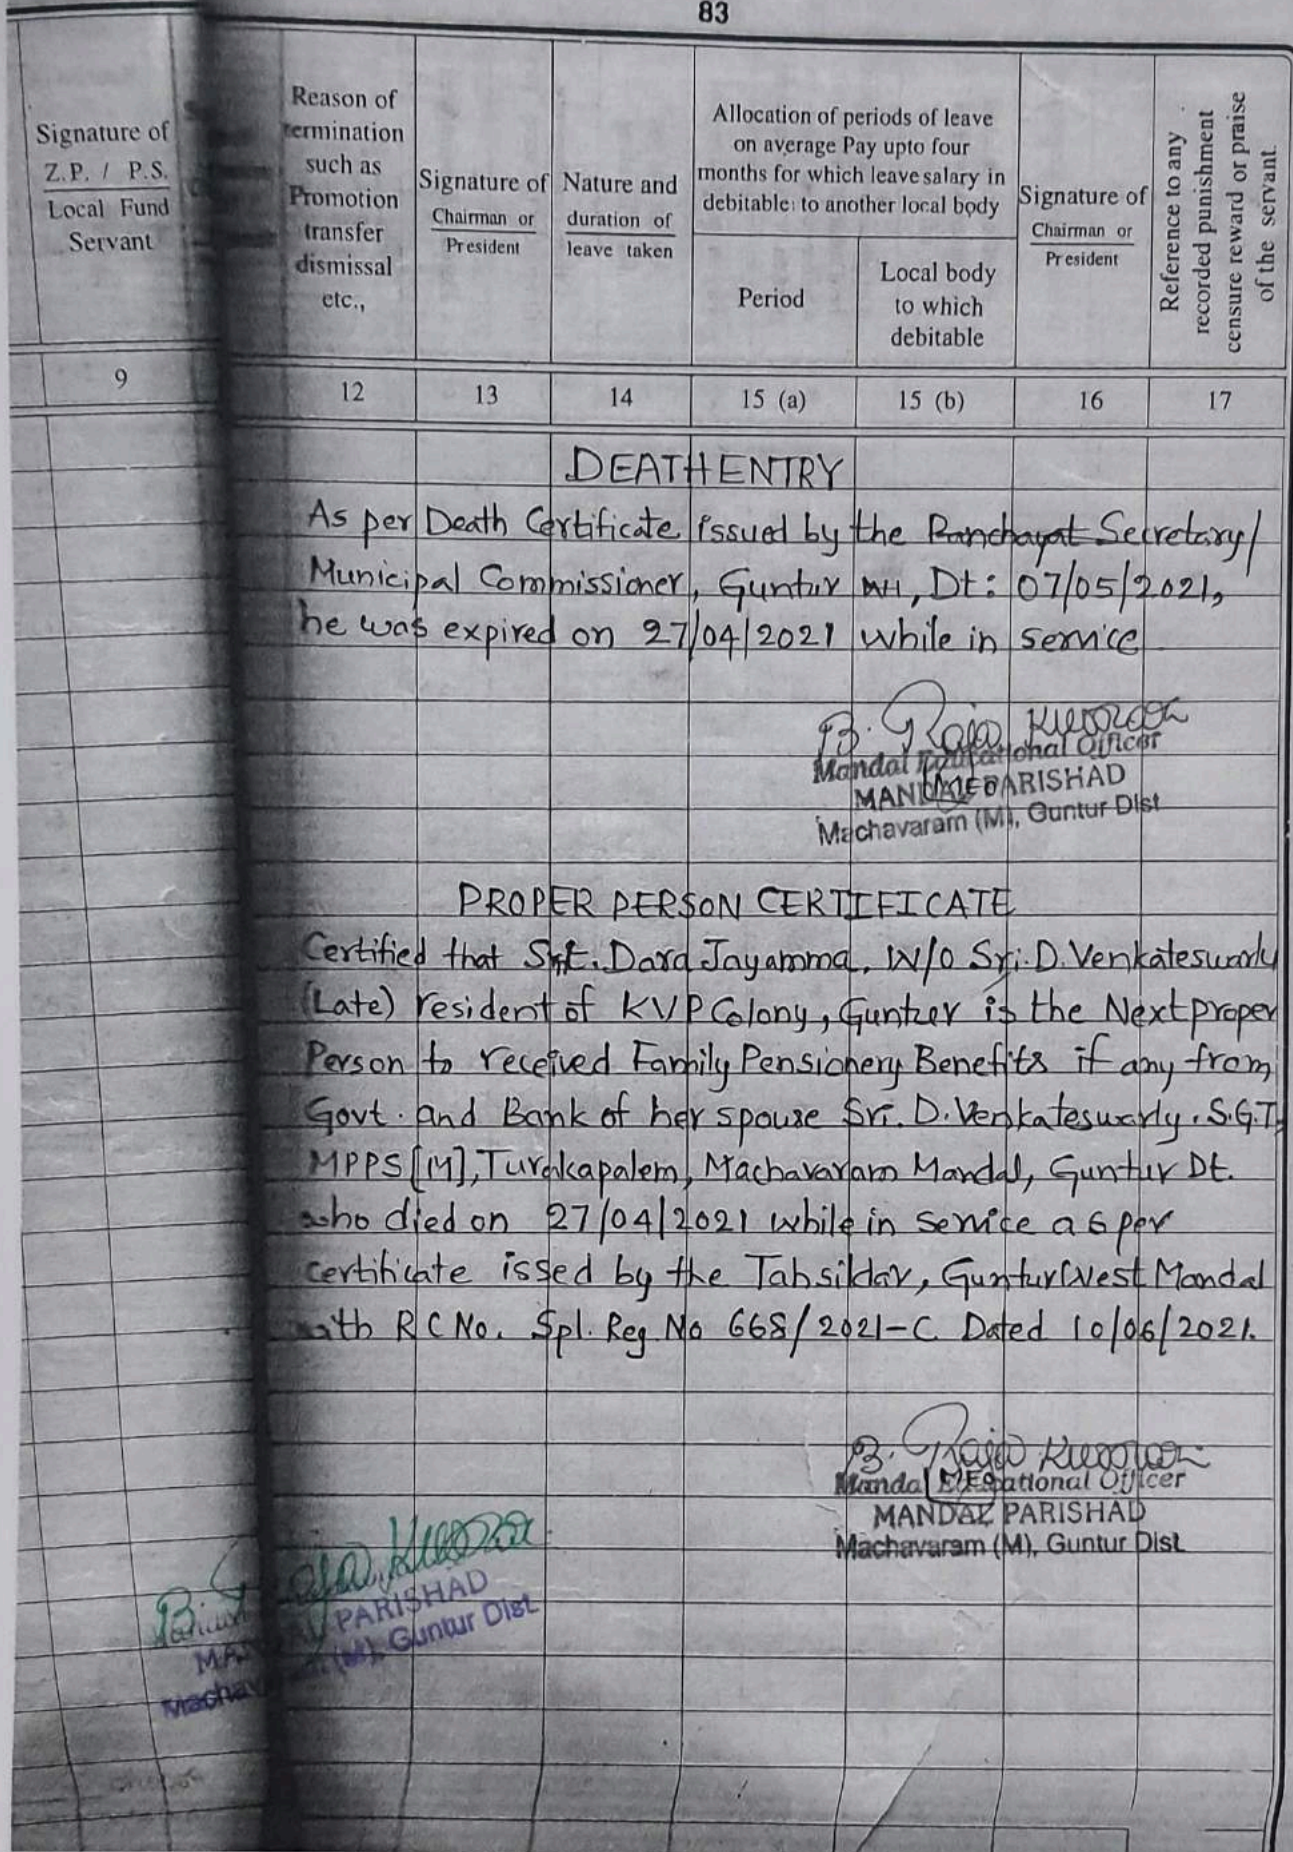 83
Signature of
Z.P. / P.S.
Local Fund
Servant
Reason of
termination
such as
Promotion
transfer
dismissal
etc.,
Signature of
Chairman or
President
Nature and
duration of
leave taken
Allocation of periods of leave
on average Pay upto four
months for which leave salary in
debitable to another local body
Period
Local body
to which
debitable
Signature of
Chairman or
President
Reference to any
recorded punishment
censure reward or praise
of the servant.
9 12 13 14 15 (a) 15 (b) 16 17
DEATH ENTRY
As per Death Certificate issued by the Panchayat Secretary/
Municipal Commissioner, Guntur, Dt: 07/05/2021,
he was expired on 27/04/2021 while in service
B. Raja
Mandal Educational Officer
MANDAL PARISHAD
Machavaram (M), Guntur Dist
PROPER PERSON CERTIFICATE
Certified that Smt. Dara Jayamma, W/o Sri. D. Venkateswarly
(Late) resident of KVP Colony, Guntur is the Next proper
Person to received Family Pensionery Benefits if any from
Govt. and Bank of her spouse Sri. D. Venkateswarly. S.G.T,
MPPS [M], Turakapalem, Machavaram Mandal, Guntur Dt.
who died on 27/04/2021 while in service as per
certificate issed by the Tahsildar, Guntur West Mandal
with RC No. Spl. Reg. No 668/2021-C. Dated 10/06/2021.
B. Raja
Mandal Educational Officer
MANDAL PARISHAD
Machavaram (M), Guntur Dist
B.
PARISHAD
(M), Guntur Dist